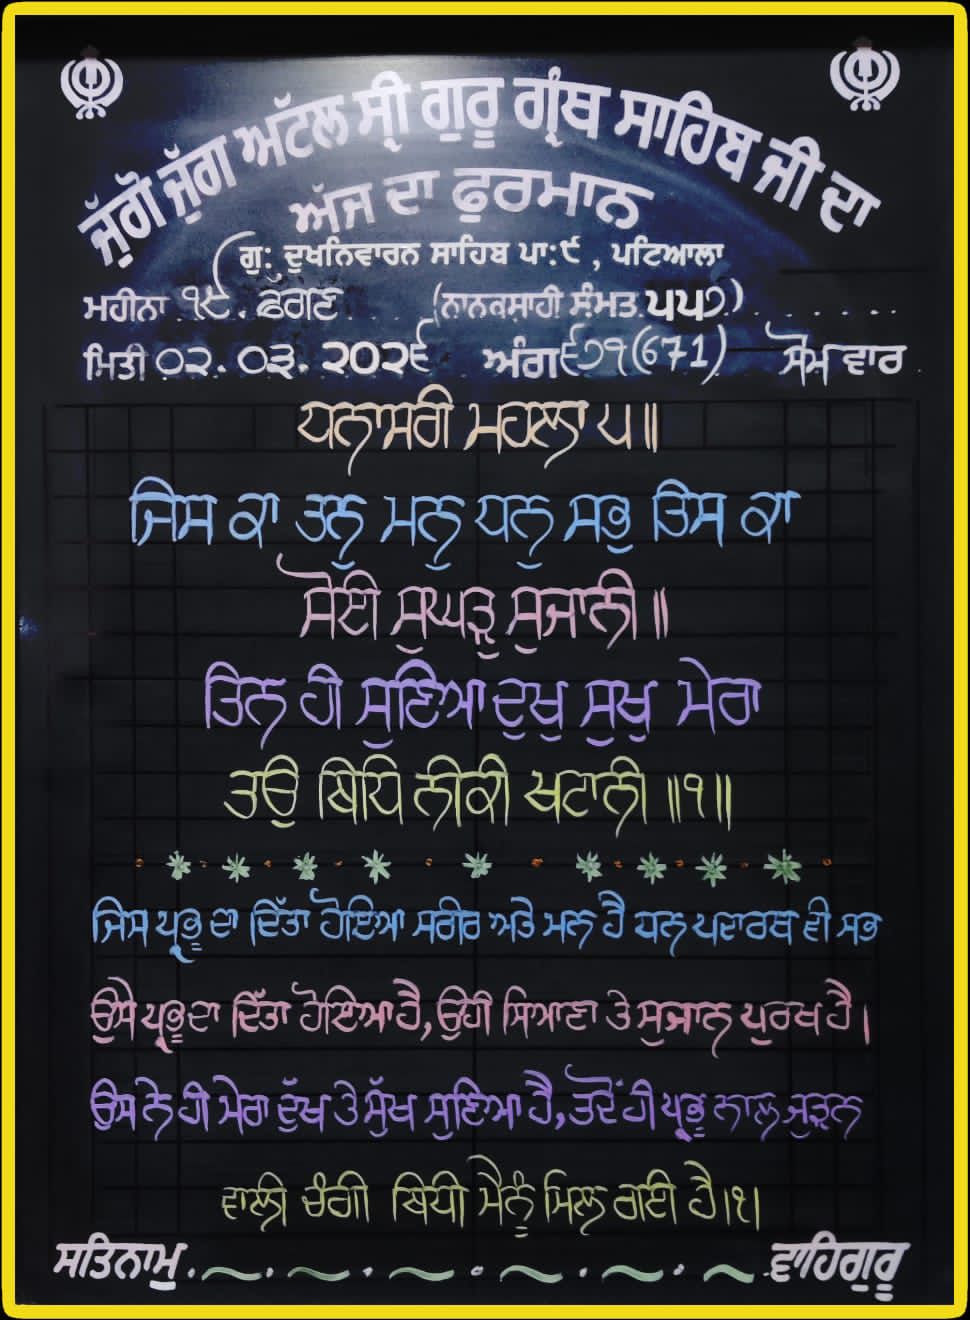 ਜੁੱਗੋ ਜੁੱਗ ਅੱਟਲ ਸ੍ਰੀ ਗੁਰੂ ਗ੍ਰੰਥ ਸਾਹਿਬ ਜੀ ਦਾ
ਅੱਜ ਦਾ ਫੁਰਮਾਨ
ਗੁ: ਦੁਖਨਿਵਾਰਨ ਸਾਹਿਬ ਪਾ:੯ , ਪਟਿਆਲਾ
ਮਹੀਨਾ ੧੯. ਫੱਗਣ (ਨਾਨਕਸ਼ਾਹੀ ਸੰਮਤ ੫੫੭)
ਮਿਤੀ ੦੨. ੦੩. ੨੦੨੬ ਅੰਗ ੬੭੧ (671) ਸੋਮ ਵਾਰ
ਧਨਾਸਰੀ ਮਹਲਾ ੫॥
ਜਿਸ ਕਾ ਤਨੁ ਮਨੁ ਧਨੁ ਸਭੁ ਤਿਸ ਕਾ
ਸੋਈ ਸੁਘੜੁ ਸੁਜਾਨੀ ॥
ਤਿਨ ਹੀ ਸੁਣਿਆ ਦੁਖੁ ਸੁਖੁ ਮੇਰਾ
ਤਉ ਬਿਧਿ ਨੀਕੀ ਖਟਾਨੀ ॥੧॥
ਜਿਸ ਪ੍ਰਭੂ ਦਾ ਦਿੱਤਾ ਹੋਇਆ ਸਰੀਰ ਅਤੇ ਮਨ ਹੈ ਧਨ ਪਦਾਰਥ ਵੀ ਸਭ
ਉਸੇ ਪ੍ਰਭੂ ਦਾ ਦਿੱਤਾ ਹੋਇਆ ਹੈ, ਉਹੀ ਸਿਆਣਾ ਤੇ ਸੁਜਾਨ ਪੁਰਖ ਹੈ।
ਉਸ ਨੇ ਹੀ ਮੇਰਾ ਦੁੱਖ ਤੇ ਸੁੱਖ ਸੁਣਿਆ ਹੈ, ਤਦੋਂ ਹੀ ਪ੍ਰਭੂ ਨਾਲ ਜੁੜਨ
ਵਾਲੀ ਚੰਗੀ ਬਿਧੀ ਮੈਨੂੰ ਮਿਲ ਗਈ ਹੈ।੧।
ਸਤਿਨਾਮੁ ਵਾਹਿਗੁਰੂ